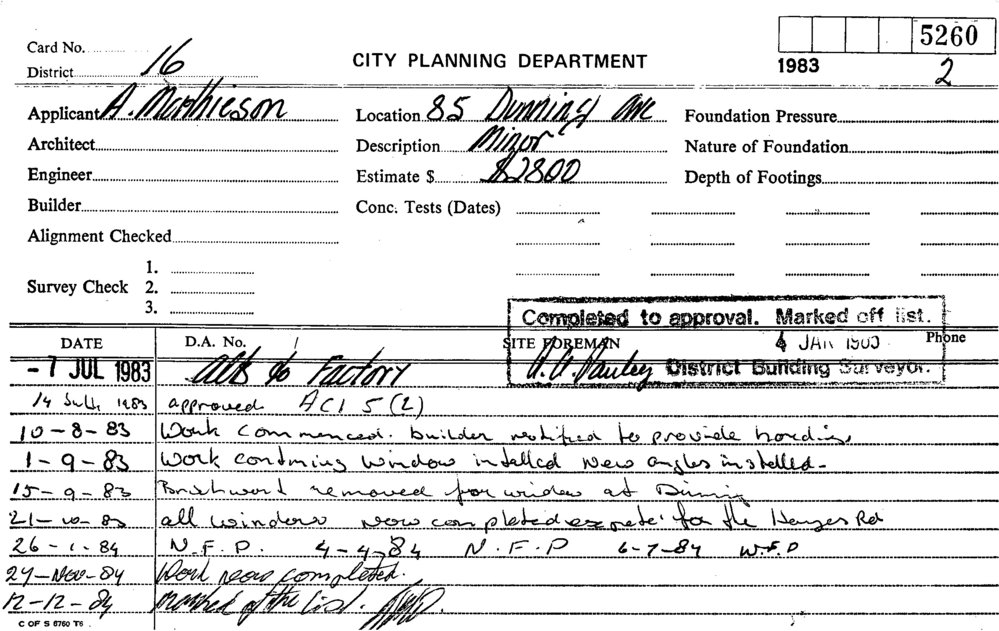 5260
Card No. 16
CITY PLANNING DEPARTMENT
1983 2
District
Applicant A. Matthieson
Location 85 Dunning Ave
Foundation Pressure
Architect
Description Minor
Nature of Foundation
Engineer
Estimate $ $2800
Depth of Footings
Builder
Conc. Tests (Dates)
Alignment Checked
1.
Survey Check 2.
3.
Completed to approval. Marked off list.
DATE D.A. No. SITE FOREMAN 4 JAN Phone
District Building Surveyor.
- 7 JUL 1983 Alts to Factory
14 July 1983 approved ACI 5 (2)
10-8-83 Work commenced. builder notified to provide hoarding
1-9-83 Work continuing window installed New angles installed-
15-9-83 Brickwork removed for window at Dunning
21-10-83 all windows now completed for the Rd
26-1-84 N.F.P. 4-4-84 N.F.P 6-7-84 N.F.P
27-Nov-84 Work now completed.
12-12-84 marked of the list.
C OF S 6760 T6